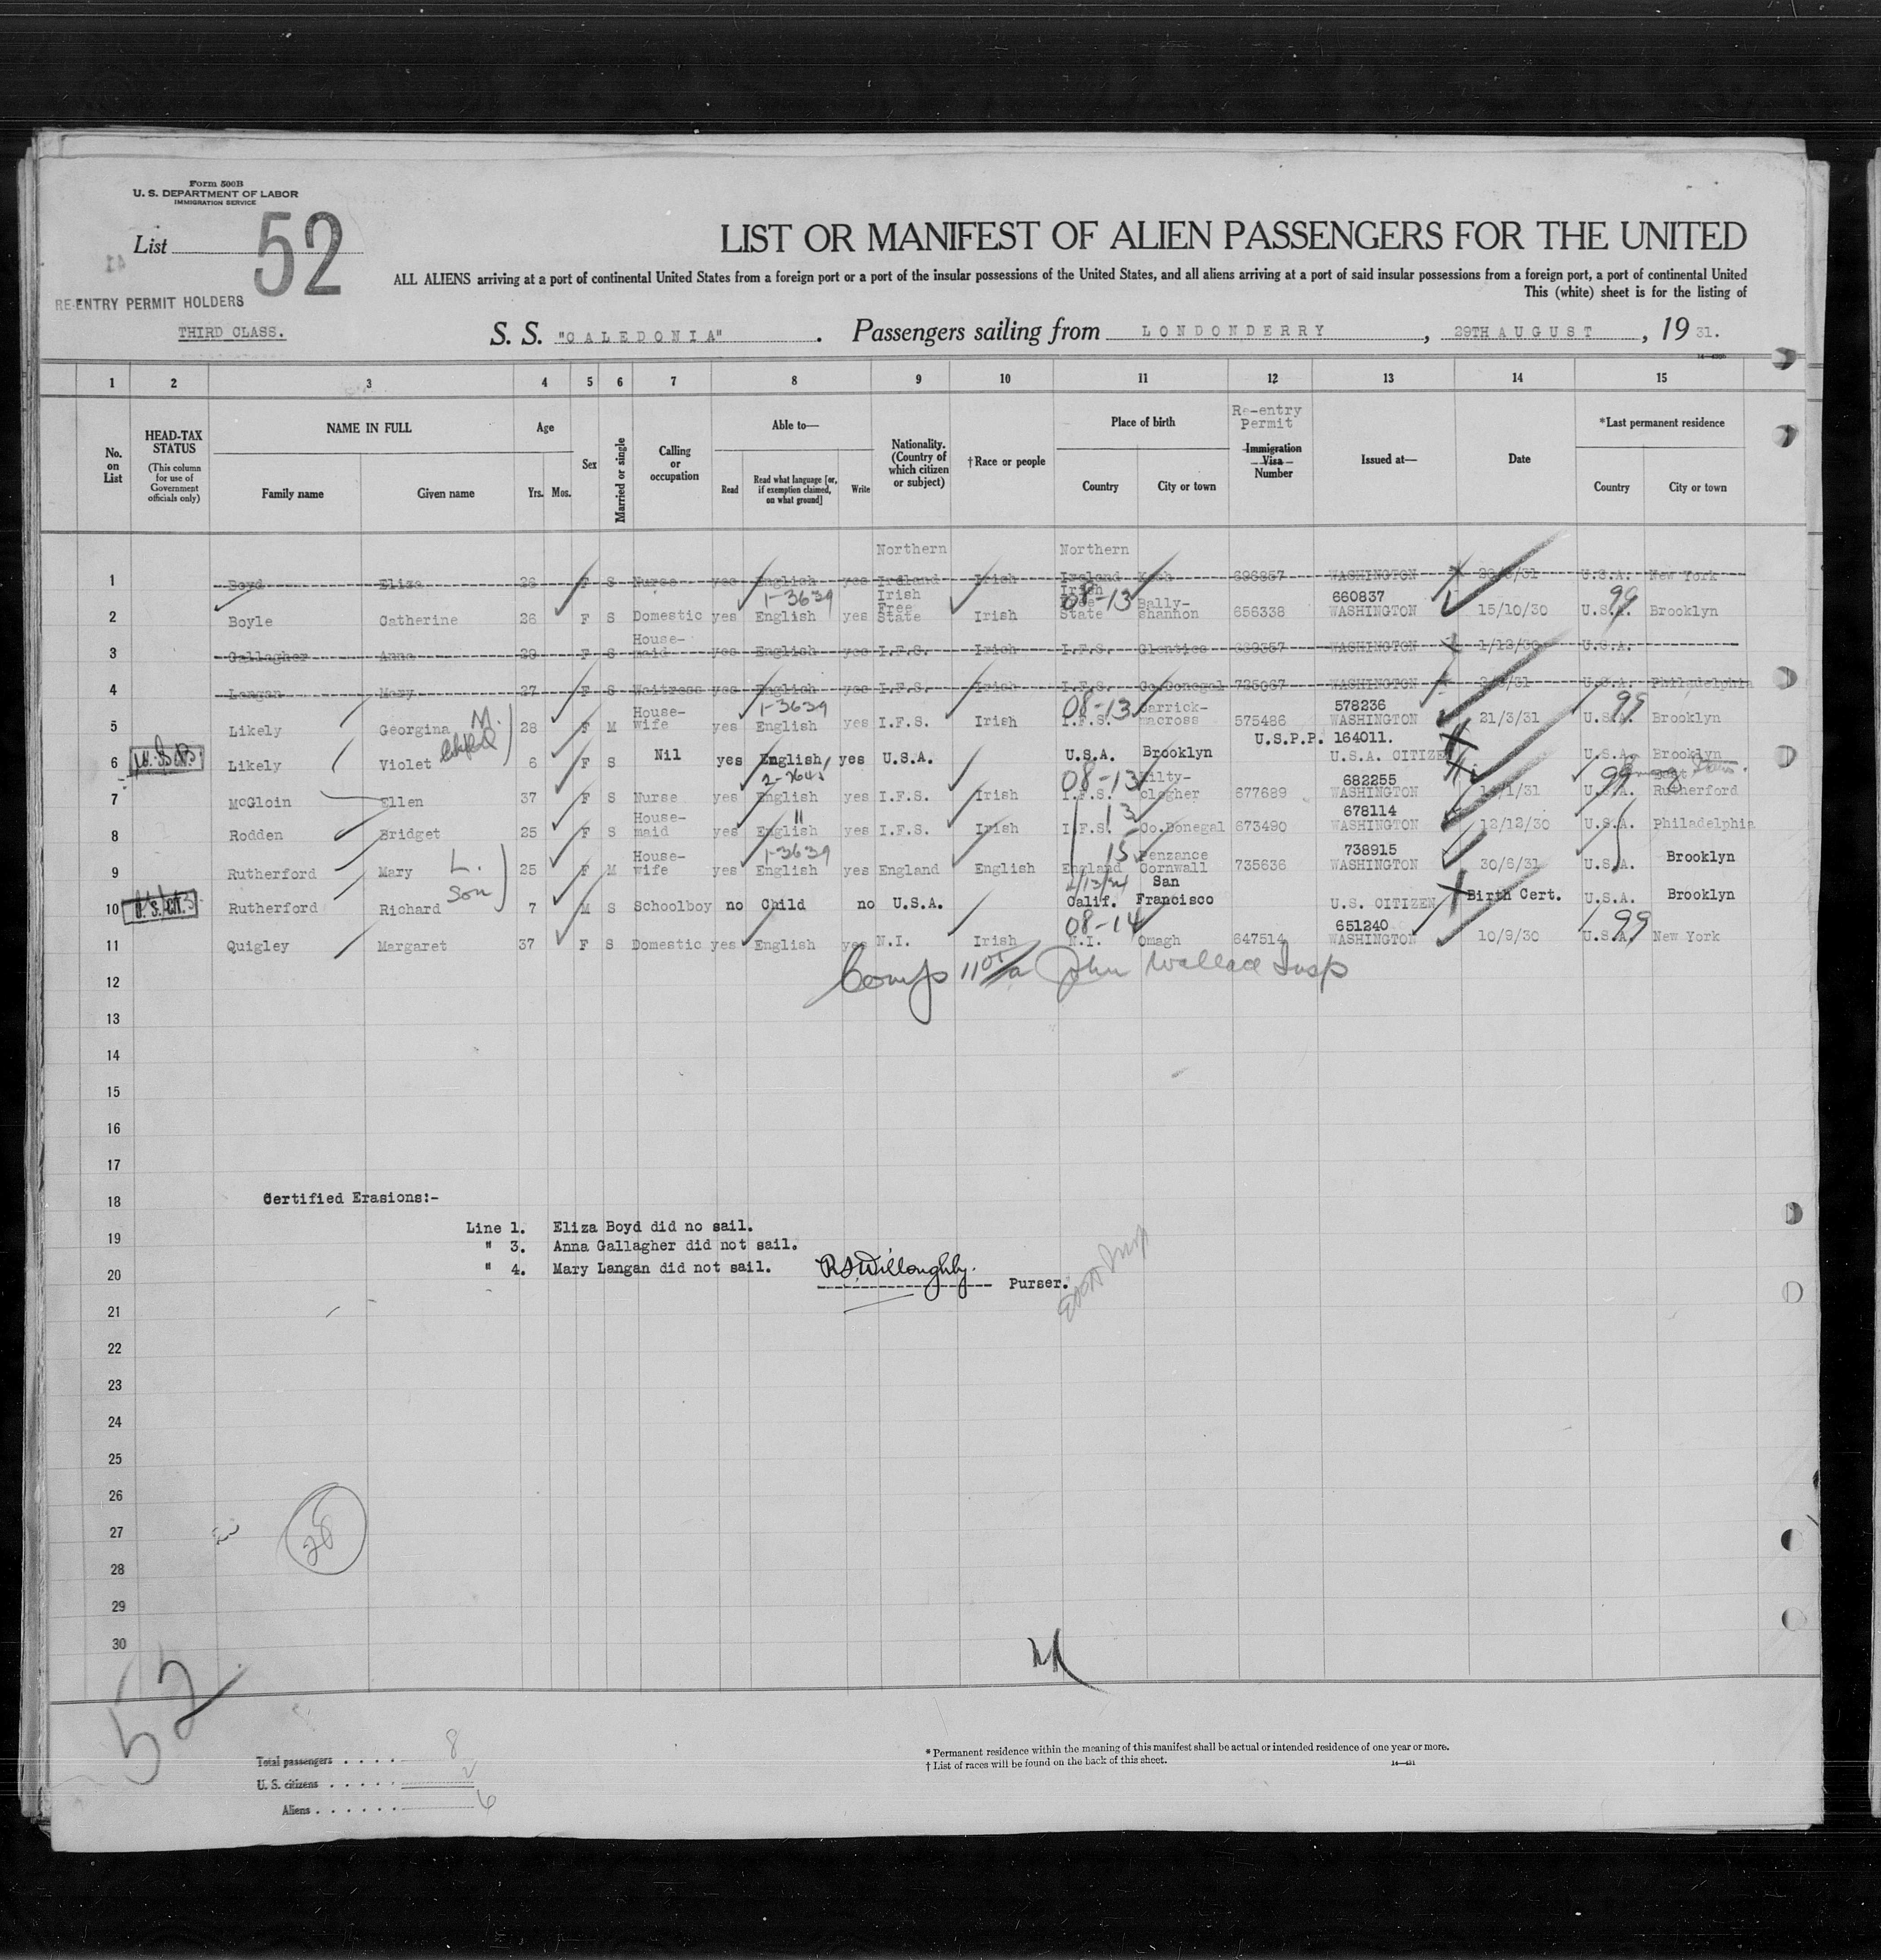 Form 500B
U. S. DEPARTMENT OF LABOR
IMMIGRATION SERVICE
List 52
RE-ENTRY PERMIT HOLDERS
THIRD CLASS.
LIST OR MANIFEST OF ALIEN PASSENGERS FOR THE UNITED
ALL ALIENS arriving at a port of continental United States from a foreign port or a port of the insular possessions of the United States, and all aliens arriving at a port of said insular possessions from a foreign port, a port of continental United
This (white) sheet is for the listing of
S. S. "CALEDONIA" . Passengers sailing from LONDONDERRY , 29TH AUGUST , 19 31.
1 2 3 4 5 6 7 8 9 10 11 12 13 14 15
No. on List
HEAD-TAX STATUS
(This column for use of Government officials only)
NAME IN FULL
Family name Given name
Age
Yrs. Mos.
Sex
Married or single
Calling or occupation
Able to—
Read Read what language [or, if exemption claimed, on what ground] Write
Nationality. (Country of which citizen or subject)
†Race or people
Place of birth
Country City or town
Re-entry Permit
Immigration Visa Number
Issued at—
Date
*Last permanent residence
Country City or town
Northern Northern
1 Boyd Eliza 26 F S Nurse yes English yes Ireland Irish Ireland 696857 WASHINGTON U.S.A. New York
1-3639 Irish Free Irish Free 08-13 Bally- 660837 99
2 Boyle Catherine 26 F S Domestic yes English yes State Irish State shannon 656338 WASHINGTON 15/10/30 U.S.A. Brooklyn
House-
3 Gallagher Anna 29 F S maid yes English yes I.F.S. Irish I.F.S. Glenties WASHINGTON 1/12/30 U.S.A.
4 Langan Mary 27 F S Waitress yes English yes I.F.S. Irish I.F.S. Co.Donegal WASHINGTON U.S.A. Philadelphia
House- 1-3639 08-13 Carrick- 578236 99
5 Likely Georgina M. 28 F M wife yes English yes I.F.S. Irish I.F.S. macross 575486 WASHINGTON 21/3/31 U.S.A. Brooklyn
U.S.P.P. 164011.
6 Likely Violet 6 F S Nil yes English yes U.S.A. U.S.A. Brooklyn U.S.A. CITIZEN U.S.A. Brooklyn
08-13 Kilty- 682255 99 East
7 McGloin Ellen 37 F S Nurse yes English yes I.F.S. Irish I.F.S. clogher 677689 WASHINGTON U.S.A. Rutherford
House- 11 13 678114
8 Rodden Bridget 25 F S maid yes English yes I.F.S. Irish I.F.S. Co.Donegal 673490 WASHINGTON 12/12/30 U.S.A. Philadelphia
House- 1-3639 15 Penzance 738915
9 Rutherford Mary L. 25 F M wife yes English yes England English England Cornwall 735636 WASHINGTON 30/6/31 U.S.A. Brooklyn
San
10 U. S. CIT. Rutherford Richard Son 7 M S Schoolboy no Child no U.S.A. Calif. Francisco U.S. CITIZEN Birth Cert. U.S.A. Brooklyn
08-14 651240 99
11 Quigley Margaret 37 F S Domestic yes English yes N.I. Irish N.I. Omagh 647514 WASHINGTON 10/9/30 U.S.A. New York
12 John Wallace Insp
13
14
15
16
17
18 Certified Erasions:-
Line 1. Eliza Boyd did no sail.
19
" 3. Anna Gallagher did not sail.
20 " 4. Mary Langan did not sail. Willoughby. Purser.
21
22
23
24
25
26
27
28
29
30
26
52
Total passengers . . . . 8
U. S. citizens . . . . . 2
Aliens . . . . . . 6
* Permanent residence within the meaning of this manifest shall be actual or intended residence of one year or more.
† List of races will be found on the back of this sheet.
14—431